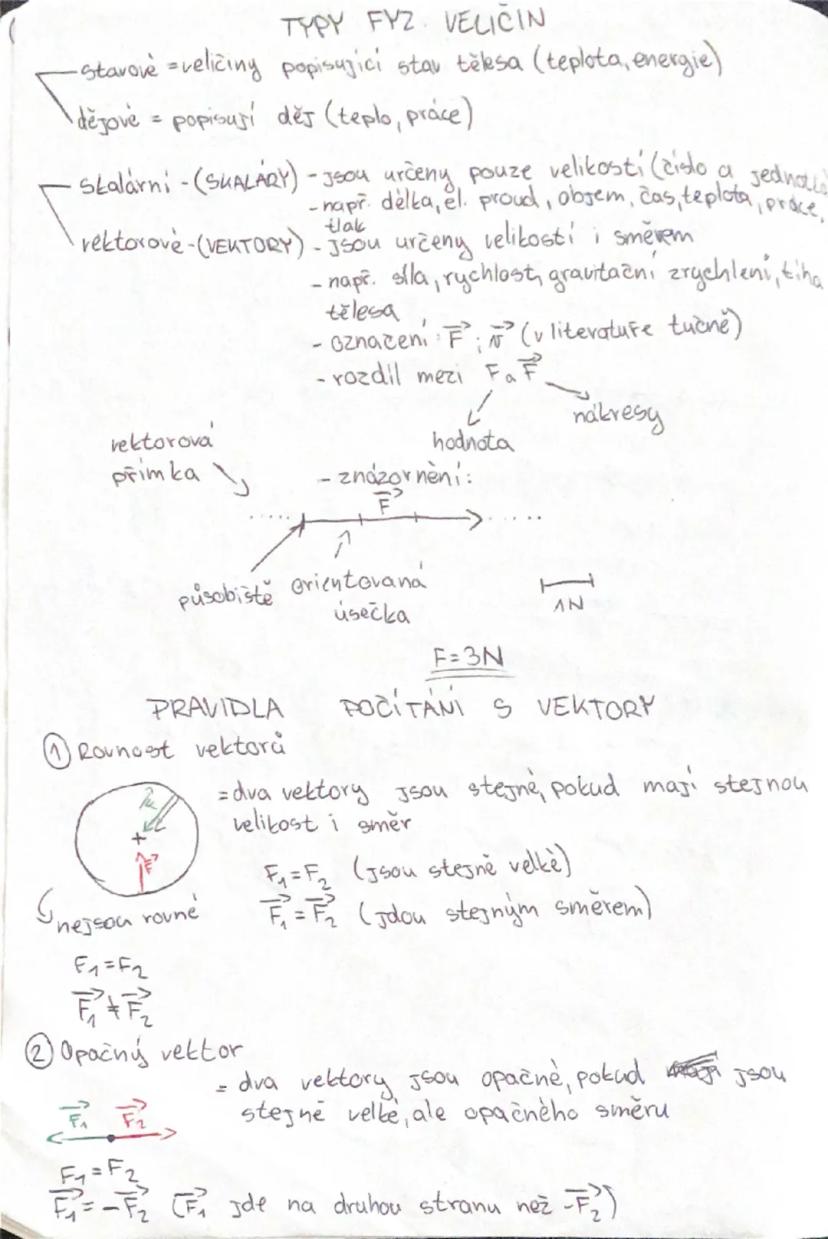 TYPY FYZ. VELIČIN
stavové = veličiny popisující stav tělesa (teplota, energie)
dějové = popisují děj (teplo, práce)
skalární - (SKALÁRY) - jsou určeny pouze velikostí (číslo a jednotka
- např. délka, el. proud, objem, čas, teplota, práce,
tlak
vektorové - (VEKTORY) - jsou určeny velikostí i směrem
- např. síla, rychlost, gravitační zrychlení, tíha
tělesa
- označení: F⃗; v⃗ (v literatuře tučně)
- rozdíl mezi F a F⃗
nákresy
hodnota
vektorová
přímka
- znázornění:
F⃗
působiště
orientovaná
úsečka
1N
F = 3N
PRAVIDLA POČÍTÁNÍ S VEKTORY
① Rovnost vektorů
= dva vektory jsou stejné, pokud mají stejnou
velikost i směr
F₁ = F₂ (jsou stejně velké)
F⃗₁ = F⃗₂ (jdou stejným směrem)
nejsou rovné
F₁ = F₂
F⃗₁ ≠ F⃗₂
② Opačný vektor
= dva vektory jsou opačné, pokud jsou
stejně velké, ale opačného směru
F⃗₁ F⃗₂
F₁ = F₂
F⃗₁ = -F⃗₂ (F⃗₁ jde na druhou stranu než -F⃗₂)